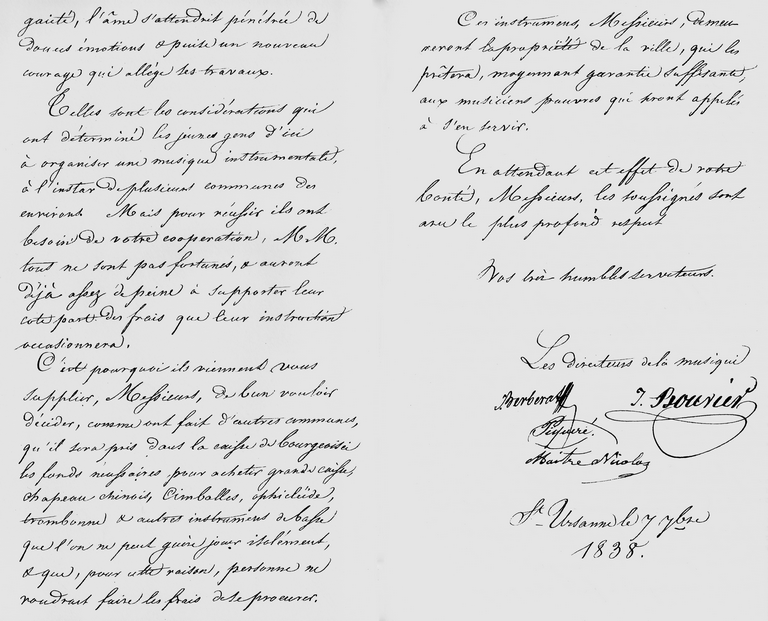 gaieté, l'âme s'attendrit pénétrée de
douces émotions & puise un nouveau
courage qui allége ses travaux.
Telles sont les considérations qui
ont déterminé les jeunes gens d'ici
à organiser une musique instrumentale,
à l'instar de plusieurs communes des
environs. Mais pour réussir ils ont
besoin de votre cooperation, MM.
tous ne sont pas fortunés, & auront
déjà assez de peine à supporter leur
cote part des frais que leur instruction
occasionnera.
C'est pourquoi ils viennent vous
supplier, Messieurs, de bien vouloir
décider, comme ont fait d'autres communes,
qu'il sera pris dans la caisse de bourgeoisie
les fonds nécessaires pour acheter grande caisse,
chapeau chinois, Cimballes, ophicleïde,
trombonne & autres instrumens de basse
que l'on ne peut guère jouer isolément,
& que, pour cette raison, personne ne
voudrait faire les frais de se procurer.
Ces instrumens, Messieurs, demeu
reront la propriété de la ville, qui les
prêtera, moyennant garantie suffisante,
aux musiciens pauvres qui seront appelés
à s'en servir.
En attendant cet effet de votre
bonté, Messieurs, les soussignés sont
avec le plus profond respect
Vos très humbles serviteurs.
Les directeurs de la musique
J. Bouvier
Maitre Nicolas
St. Ursanne le 7 7bre
1838.